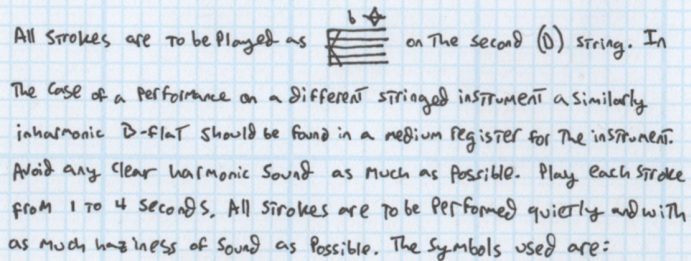 All strokes are to be played as ♭ on the second (D) string. In
the case of a performance on a different stringed instrument a similarly
inharmonic B-flat should be found in a medium register for the instrument.
Avoid any clear harmonic sound as much as possible. Play each stroke
from 1 to 4 seconds. All strokes are to be performed quietly and with
as much haziness of sound as possible. The symbols used are: